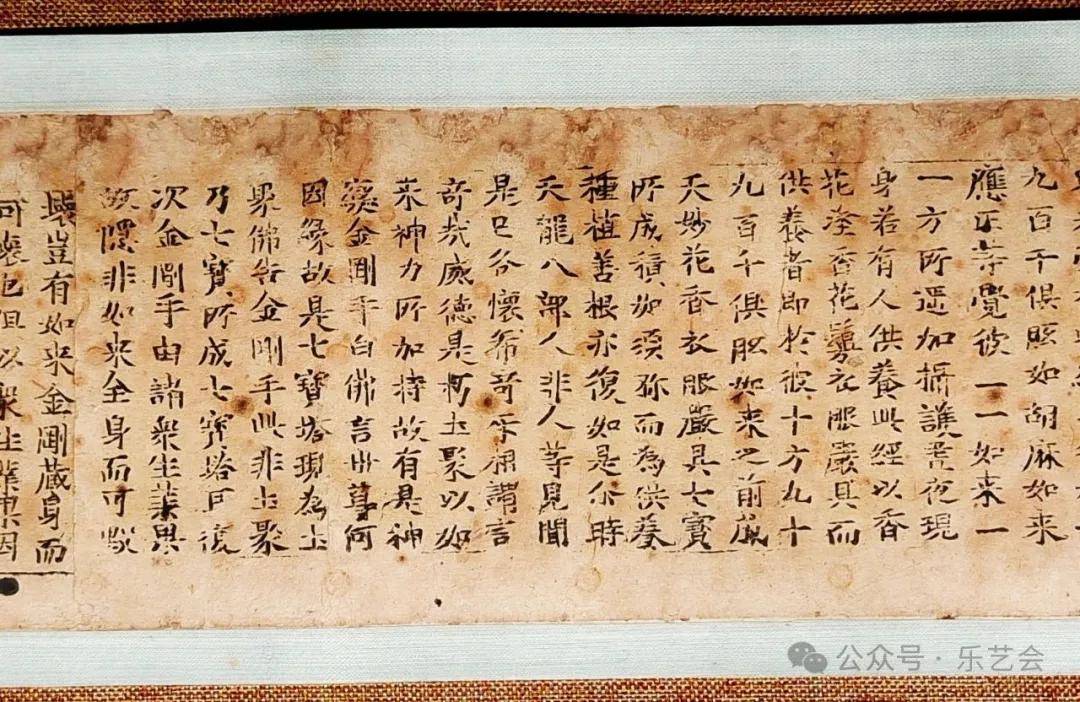 九百千俱胝如胡麻如来
應正等覺彼一一如来一
一方所遥加攝護晝夜現
身若有人供養此經以香
花塗香花鬘衣服嚴具而
供養者即於彼十方九十
九百千俱胝如来之前成
天妙花香衣服嚴具七寶
所成積如須弥而為供養
種植善根亦復如是尒時
天龍八部人非人等見聞
是已各懷希奇互相謂言
奇哉威德是朽土聚以如
来神力所加持故有是神
變金剛手白佛言世尊何
因緣故是七寶塔現為土
聚佛告金剛手此非土聚
乃七寶所成七寶塔耳復
次金剛手由諸衆生業果
故隱非如来全身而可毀
壞豈有如来金剛藏身而
可壞也但以衆生業果因
公众号·乐艺会